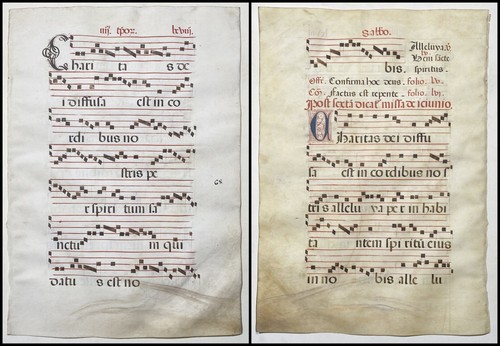 iiij. tpor. lxviij.
Chari ta s de
i diffusa est in co
rdi bus no
stris pe
r spiri tum sa
nctu m qui
datu s est no
Sabbo.
bis. Alleluya. v.
lv. Veni sancte
spiritus.
Off. Confirma hoc deus. folio. lvj.
Co. Factus est repente. folio. lvj.
Post sextā dicat missa de ieiunio.
Charitas dei diffu
sa est in co rdibus no s
tri s allelu ya pe r in habi
ta ntem spi ritū eius
in no bis alle lu